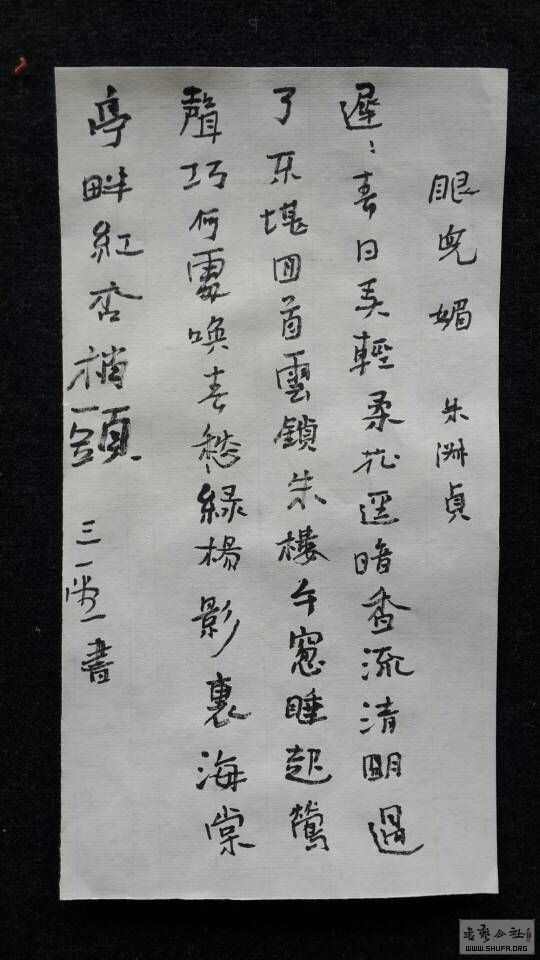 眼兒媚 朱淑貞
遲〻春日弄輕柔花逕暗香流清明過
了不堪回首雲鎖朱樓午窻睡起鶯
聲巧何處喚春愁綠楊影裏海棠
亭畔紅杏梢頭 三一堂書
書艺公社
WWW.SHUFA.ORG